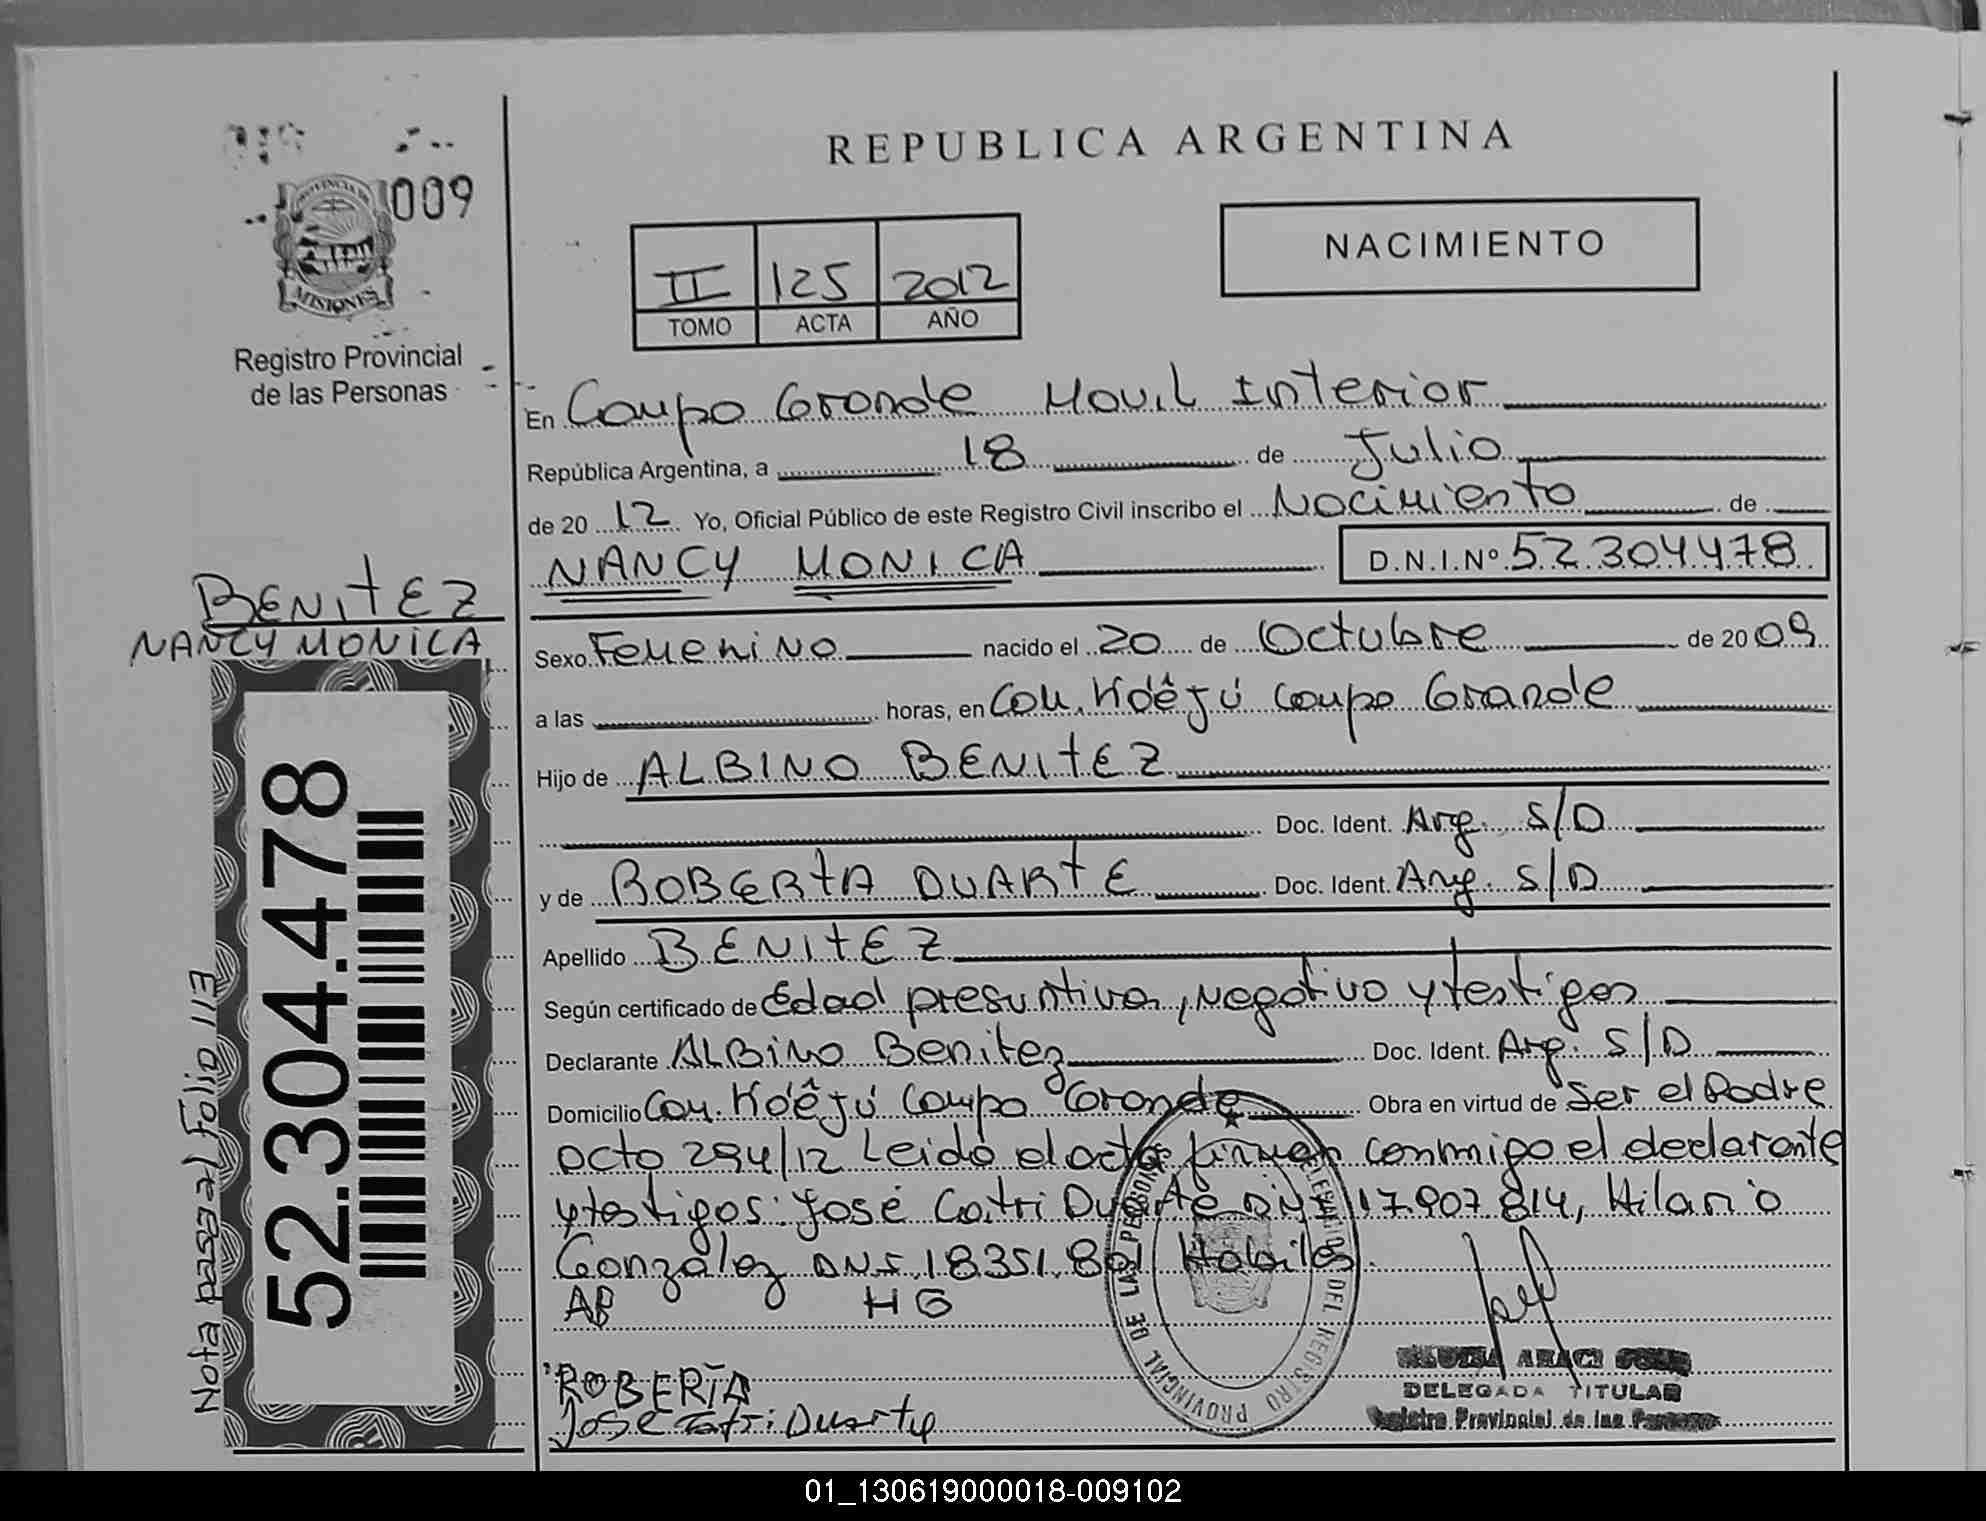 REPUBLICA ARGENTINA
009
PROVINCIA DE
MISIONES
Registro Provincial
de las Personas
II 125 2012
TOMO ACTA AÑO
NACIMIENTO
En Campo Grande Movil Interior
República Argentina, a 18 de Julio
de 2012 Yo, Oficial Público de este Registro Civil inscribo el Nacimiento de
NANCY MONICA D.N.I.Nº 52.304.478
BENITEZ
NANCY MONICA
Sexo Femenino nacido el 20 de Octubre de 2009
a las horas, en Com. Ka'êjú Campo Grande
Hijo de ALBINO BENITEZ
Doc. Ident. Arg. S/D
y de ROBERTA DUARTE Doc. Ident. Arg. S/D
Apellido BENITEZ
Según certificado de Edad presuntiva, Negativo y testigos
Declarante ALBiNo Benitez Doc. Ident. Arg. S/D
Domicilio Com. Ka'êjú Campo Grande Obra en virtud de Ser el Padre
acta 294/12 Leida el acta firman conmigo el declarante
y testigos: José Catri Duarte DNI 17.907.814, Hilario
Gonzalez DNI 18351.801 Habiles.
AB HG
ROBERTA
José Catri Duarte
REGISTRO PROVINCIAL DE LAS PERSONAS
ARACI
DELEGADA TITULAR
Registro Provincial de las Personas
52.304.478
Nota reserva Folio 113
01_130619000018-009102